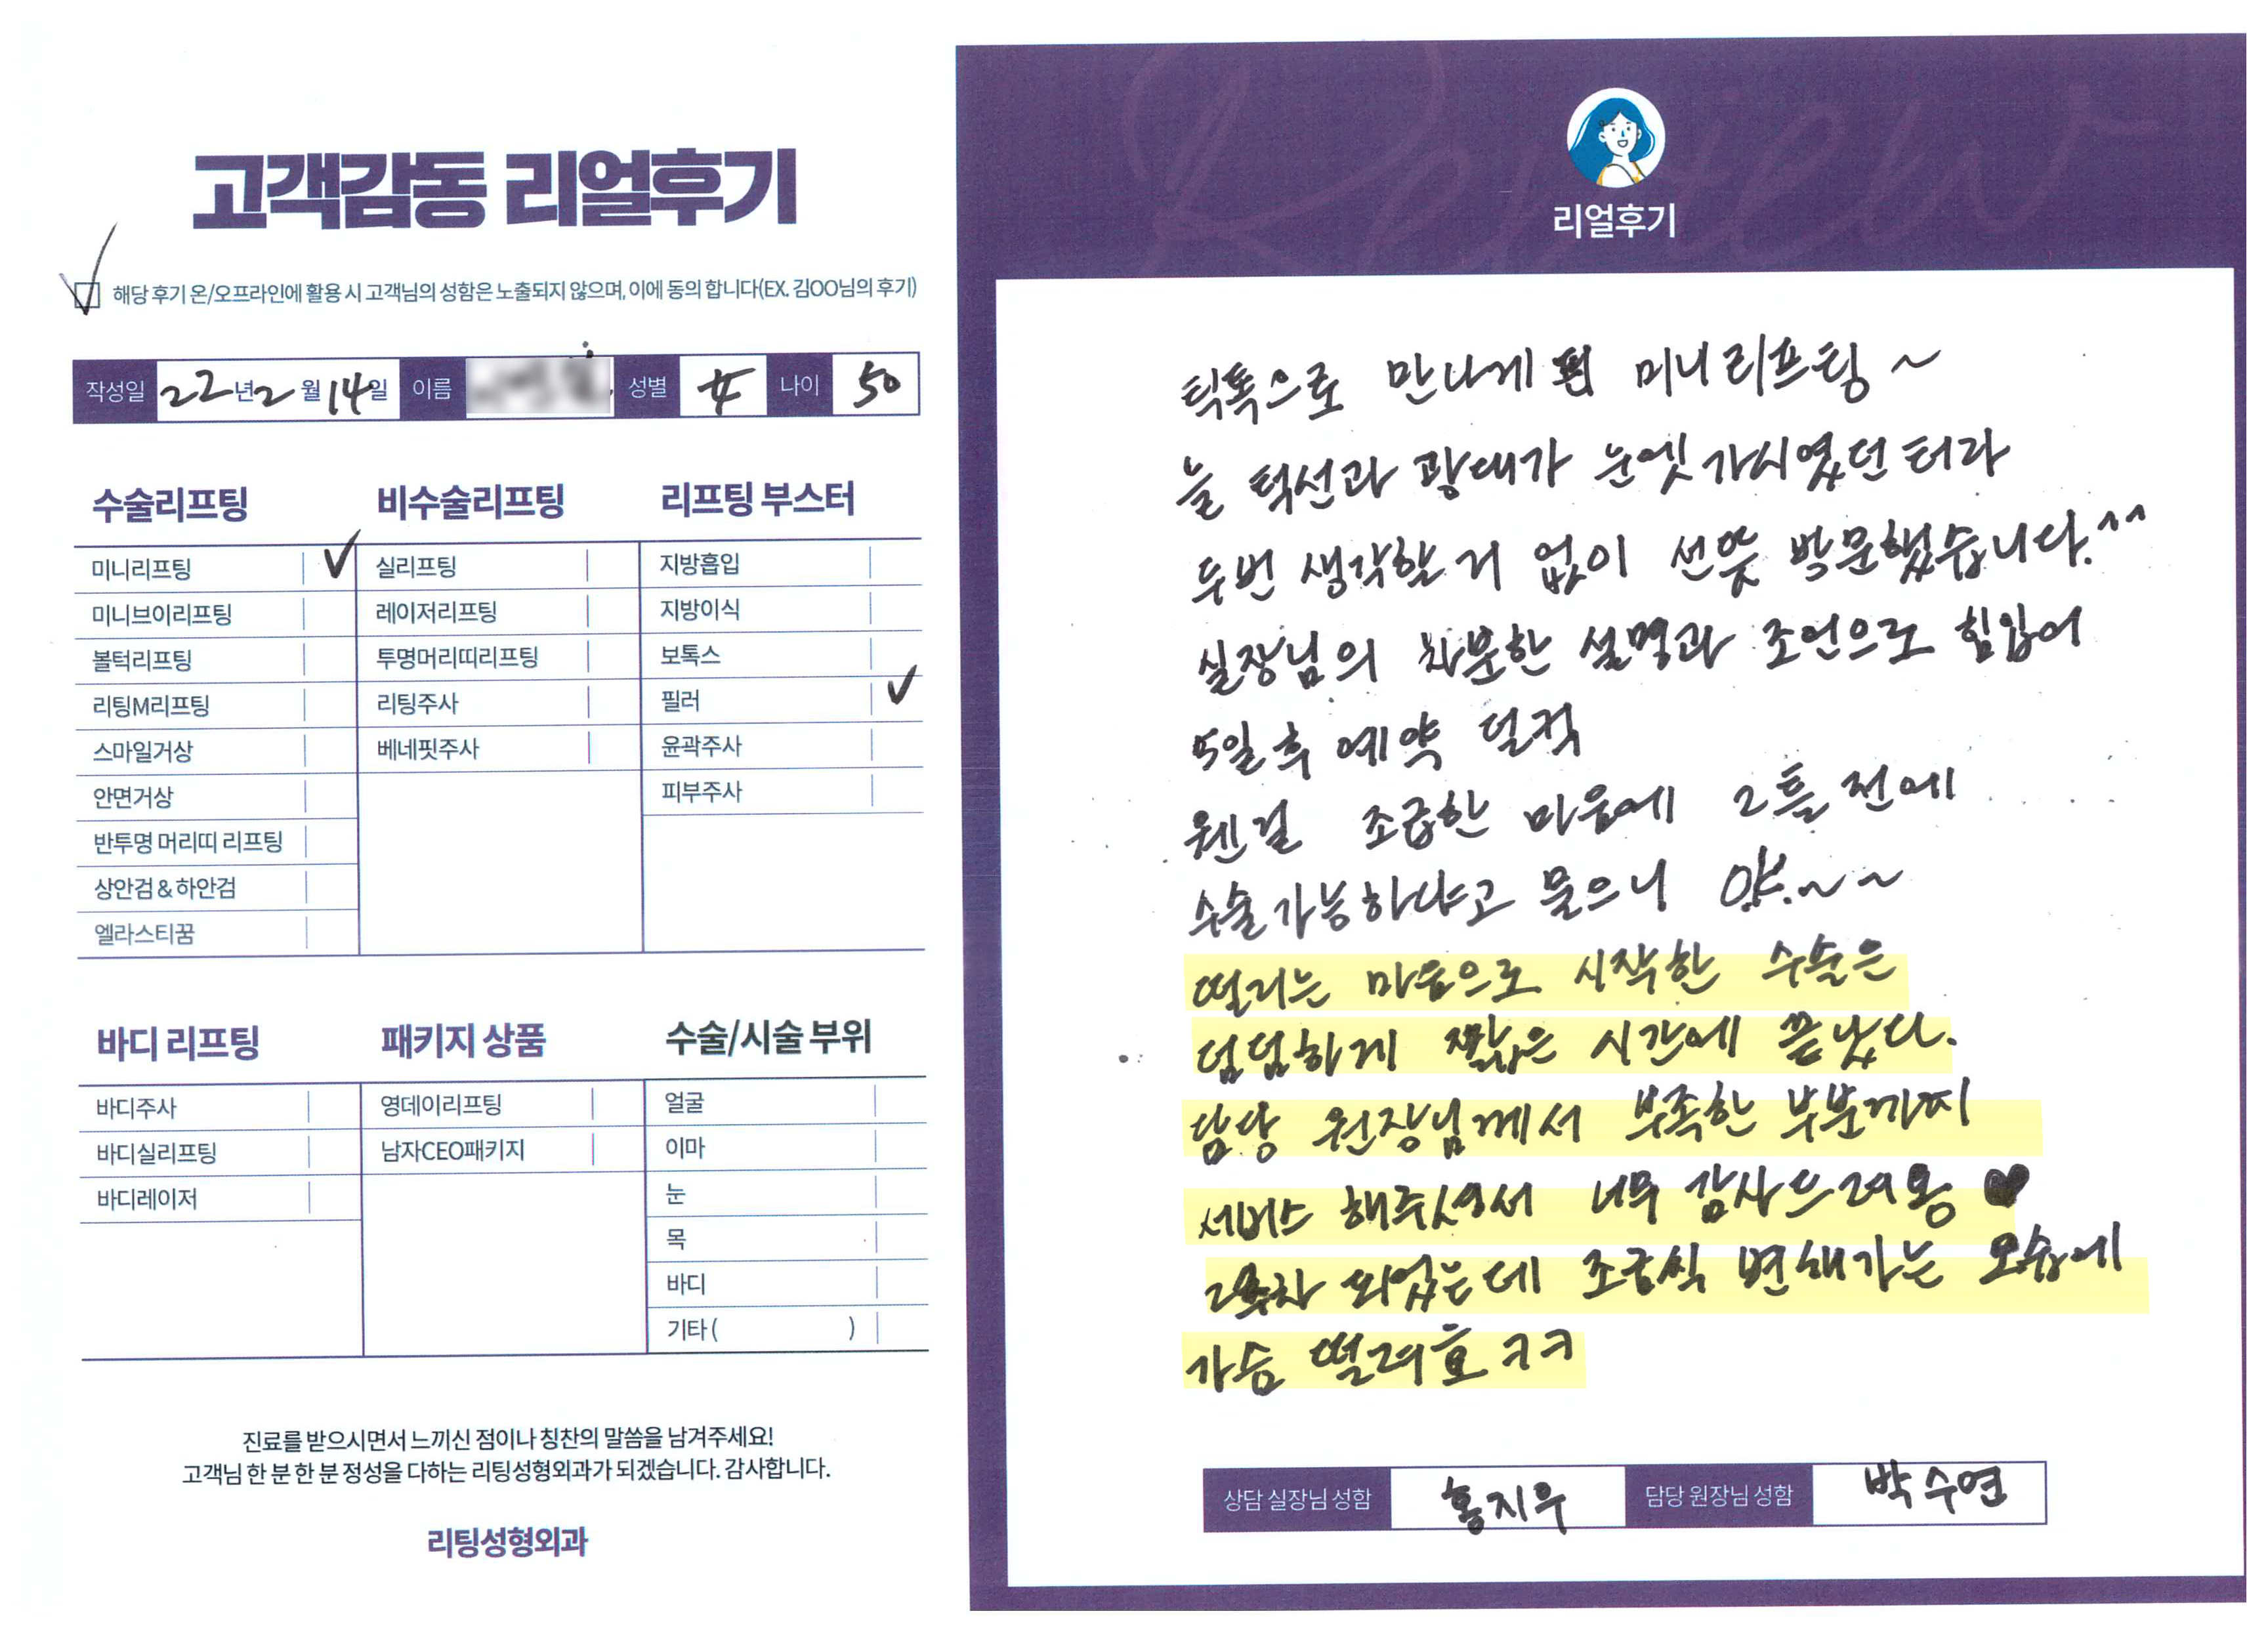 고객감동 리얼후기
해당 후기 온/오프라인에 활용 시 고객님의 성함은 노출되지 않으며, 이에 동의 합니다(EX. 김OO님의 후기)
작성일 22년 2월 14일 이름 성별 女 나이 50
수술리프팅
미니리프팅
미니브이리프팅
볼턱리프팅
리팅M리프팅
스마일거상
안면거상
반투명 머리띠 리프팅
상안검 & 하안검
엘라스티꿈
비수술리프팅
실리프팅
레이저리프팅
투명머리띠리프팅
리팅주사
베네핏주사
리프팅 부스터
지방흡입
지방이식
보톡스
필러
윤곽주사
피부주사
바디 리프팅
바디주사
바디실리프팅
바디레이저
패키지 상품
영데이리프팅
남자CEO패키지
수술/시술 부위
얼굴
이마
눈
목
바디
기타 ( )
진료를 받으시면서 느끼신 점이나 칭찬의 말씀을 남겨주세요!
고객님 한 분 한 분 정성을 다하는 리팅성형외과가 되겠습니다. 감사합니다.
리팅성형외과
Review
리얼후기
틱톡으로 만나게 된 미니리프팅~
늘 턱선과 광대가 눈엣가시였던 터라
두번 생각할 거 없이 선뜻 방문했습니다.^^
실장님의 차분한 설명과 조언으로 힘입어
5일후 예약 덜컥
웬걸 조급한 마음에 2틀전에
수술가능하냐고 물으니 얏.~~
떨리는 마음으로 시작한 수술은
덤덤하게 짧은 시간에 끝났다.
담당 원장님께서 부족한 부분까지
서비스 해주셔서 너무 감사드려용 ♥
2주차 되었는데 조금씩 변해가는 모습에
가슴 떨려효 ㅋㅋ
상담 실장님 성함 홍지우 담당 원장님 성함 박수연